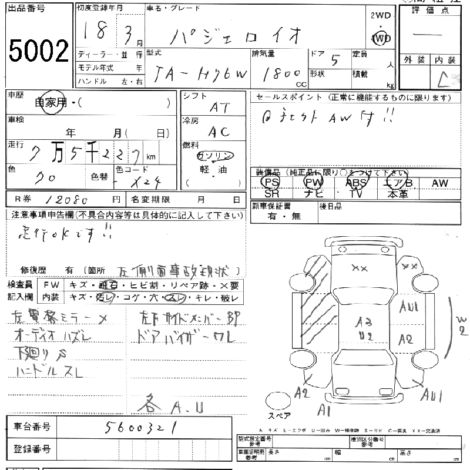 出品番号
5002
初度登録年月
18年3月
ディーラー・並行
モデル年式 年
ハンドル 左・右
車名・グレード
パジェロイオ
2WD
4WD
型式
TA-H76W
排気量
1800
CC
ドア 5
形状
定員
人
積載
kg
評価点
外装
内装
C
車歴
自家用・( )
車検
年 月(日)
走行
7万5千227km
色
クロ
色替
色コード
X24
シフト
AT
冷房
AC
燃料
ガソリン
軽油
( )
セールスポイント (正常に機能するものに限ります)
装備品 (純正品に限り○をつけて下さい)
PS PW ABS エアB AW
SR ナビ TV 本革
R券 12080 円
名変期限 月 日
新車保証書
有・無
後日品
注意事項申告欄(不具合内容等は具体的に記入して下さい)
走行OKです!!
修復歴 有 (箇所
検査員
記入欄
FW キズ・飛石・ヒビ割・リペア跡・X要
内装 キズ・汚レ・コゲ・穴・スレ・キレ・破レ
左電格ミラーメ
オーディオハズレ
下廻りS
ハンドルスレ
左下サイドメンバー BP
ドアバイザーワレ
各A.U
車台番号
5600321
登録番号
XX
XX
A3
U2
AU1
AU1
W2
A2
A1
A2
A1
スペア
型式指定番号
類別区分番号
長さ cm 幅 cm 高さ cm